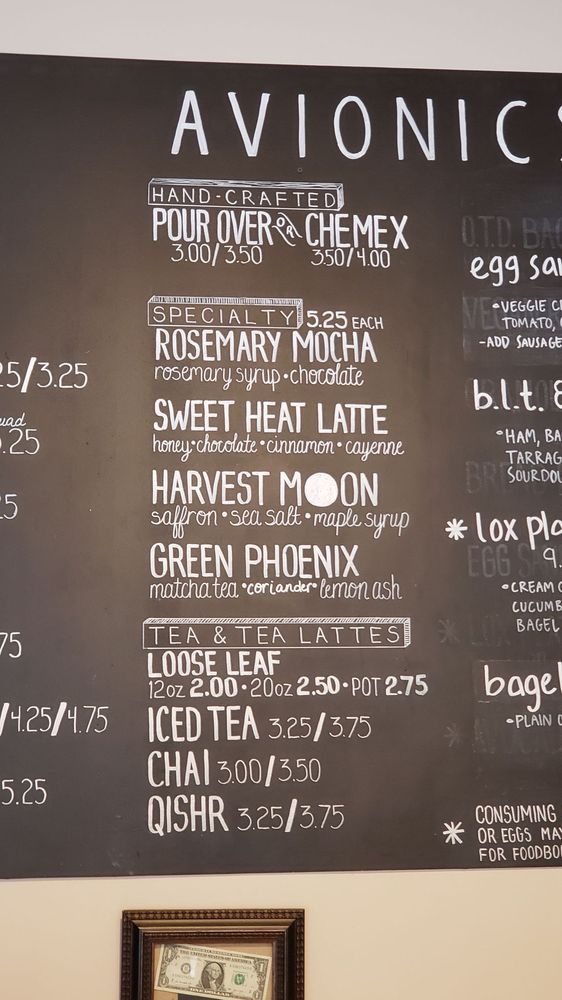 AVIONICS
HAND-CRAFTED
POUR OVER OR CHEMEX
3.00/3.50 3.50/4.00
SPECIALTY 5.25 EACH
ROSEMARY MOCHA
rosemary syrup • chocolate
SWEET HEAT LATTE
honey • chocolate • cinnamon • cayenne
HARVEST MOON
saffron • sea salt • maple syrup
GREEN PHOENIX
matcha tea • coriander • lemon ash
TEA & TEA LATTES
LOOSE LEAF
12oz 2.00 • 20oz 2.50 • POT 2.75
ICED TEA 3.25/3.75
CHAI 3.00/3.50
QISHR 3.25/3.75
25/3.25
.25
25
75
/4.25/4.75
5.25
egg
•VEGGIE
TOMATO,
-ADD SAUSAGE
b.l.t. &
•HAM,
SOURDOU
* lox
9.
•CREAM
BAGEL
bagel
•PLAIN
* CONSUMING
OR EGGS MAY
FOR FOODBO